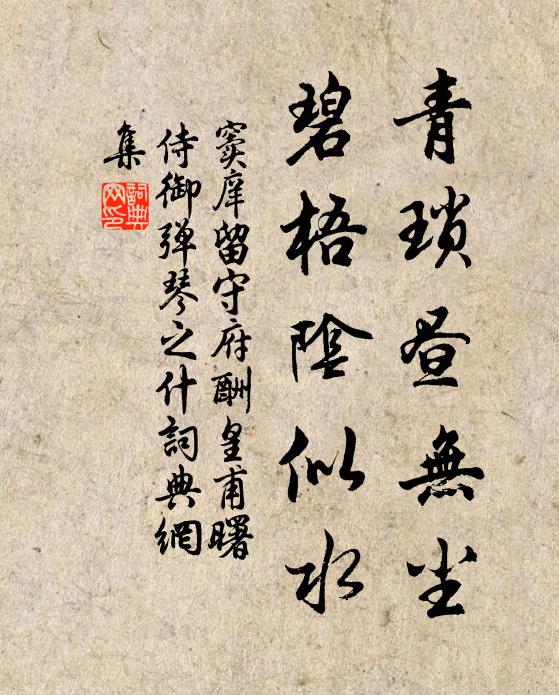 青瑣昼無尘
碧梧陰似水
窦庠留守府酬皇甫曙
侍御弹琴之什詞典網
集
詞典
网印